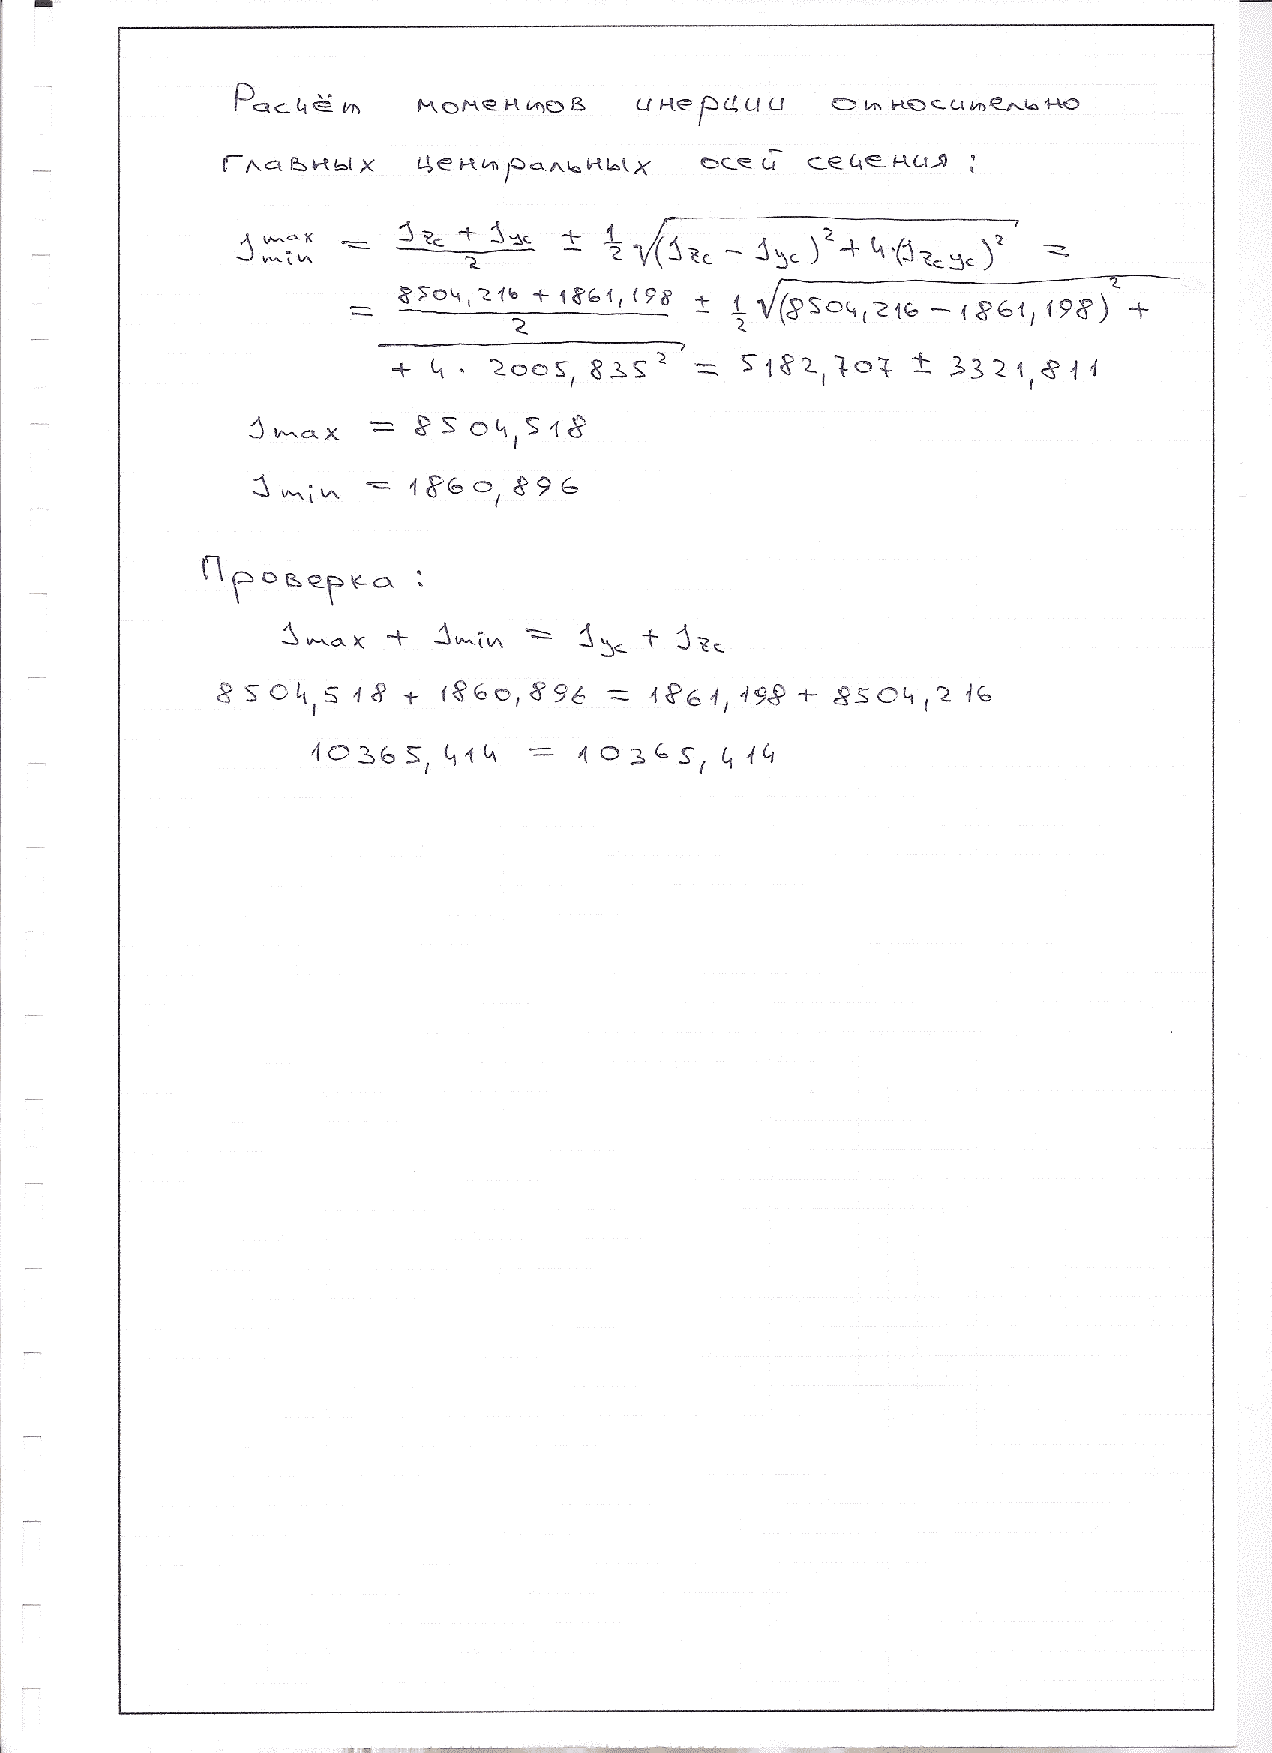 Расчёт моментов инерции относительно
главных центральных осей сечения:
J max min = (Jzc + Jyc)/2 ± 1/2 √((Jzc - Jyc)² + 4·(Jzcyc)²) =
= (8504,216 + 1861,198)/2 ± 1/2 √((8504,216 - 1861,198)² +
+ 4 · 2005,835²) = 5182,707 ± 3321,811
Jmax = 8504,518
Jmin = 1860,896
Проверка:
Jmax + Jmin = Jyc + Jzc
8504,518 + 1860,896 = 1861,198 + 8504,216
10365,414 = 10365,414